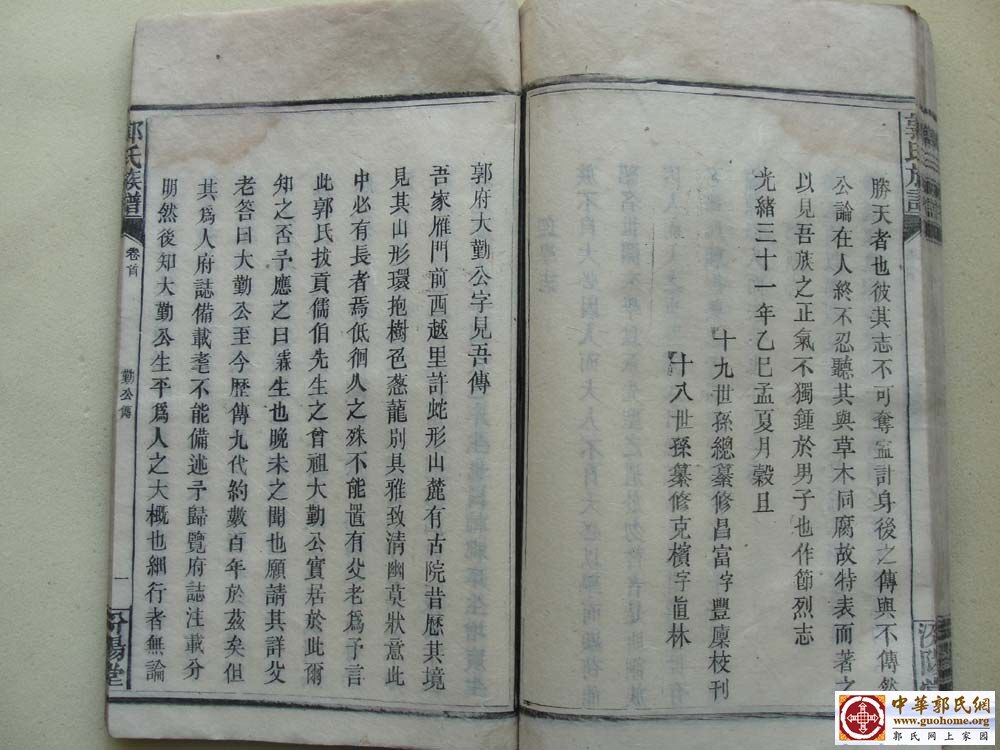 郭氏族譜
勝天者也彼其志不可奪寍計身後之傳與不傳然
公論在人終不忍聽其與草木同腐故特表而著之
以見吾族之正氣不獨鍾於男子也作節烈志
光緒三十一年乙巳孟夏月穀旦
十九世孫總纂修昌富字豐廩校刊
十八世孫纂修克檳字直林
汾陽堂
郭府大勤公字見吾傳
吾家雁門前西越里許蛇形山麓有古院昔歷其境
見其山形環抱樹色蔥蘢別具雅致清幽莫狀意此
中必有長者焉低徊久之殊不能置有父老為予言
此郭氏拔貢儒伯先生之曾祖大勤公實居於此爾
知之否予應之曰霖生也晚未之聞也願請其詳父
老答曰大勤公至今歷傳九代約數百年於茲矣但
其爲人府誌備載耄不能備述予歸覽府誌注載分
朙然後知大勤公生平爲人之大概也細行者無論
郭氏族譜
卷首
勤公傳
一
汾陽堂
中華郭氏網
www.guohome.org
郭氏網上家園